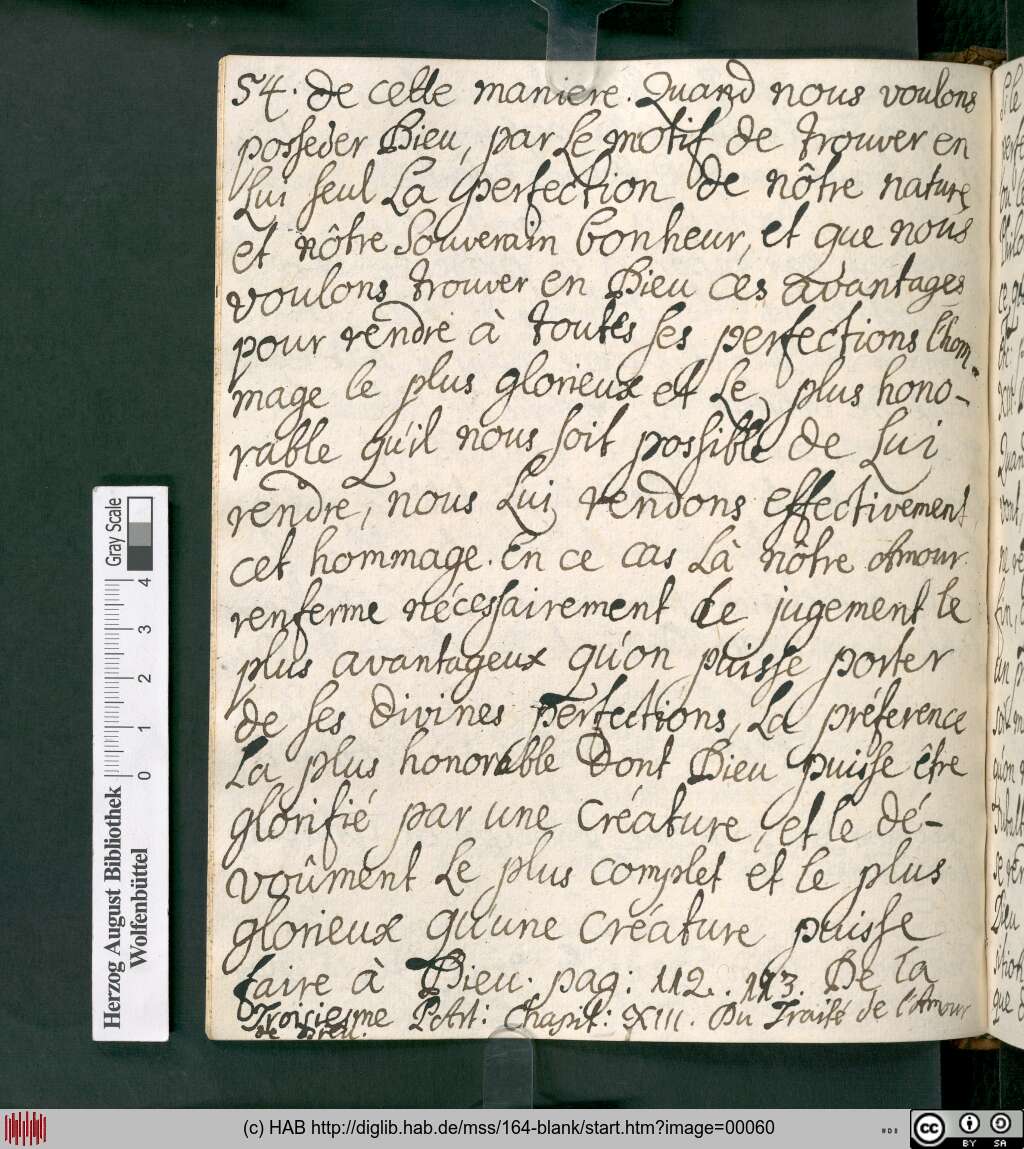 54. de cette maniere. Quand nous voulons
posseder Dieu, par Le motif de trouver en
Lui seul La perfection de nôtre nature
et nôtre Souverain bonheur, et que nous
voulons trouver en Dieu ces avantages
pour rendre à toutes ses perfections l'hom-
mage le plus glorieux et Le plus hono-
rable qu'il nous soit possible de Lui
rendre, nous Lui rendons effectivement
cet hommage. En ce cas Là nôtre Amour
renferme nécessairement Le jugement le
plus avantageux qu'on puisse porter
de ses divines Perfections, La préference
La plus honorable Dont Dieu puisse être
glorifié par une Créature, et le dé-
voûment Le plus complet et le plus
glorieux qu'une Créature puisse
faire à Dieu. pag: 112. 113. De la
Troisiesme Part: Chapit: XIII. Du Traité de l'Amour
de Dieu.
Gray Scale
0 1 2 3 4
Herzog August Bibliothek
Wolfenbüttel
(c) HAB http://diglib.hab.de/mss/164-blank/start.htm?image=00060
cc BY SA